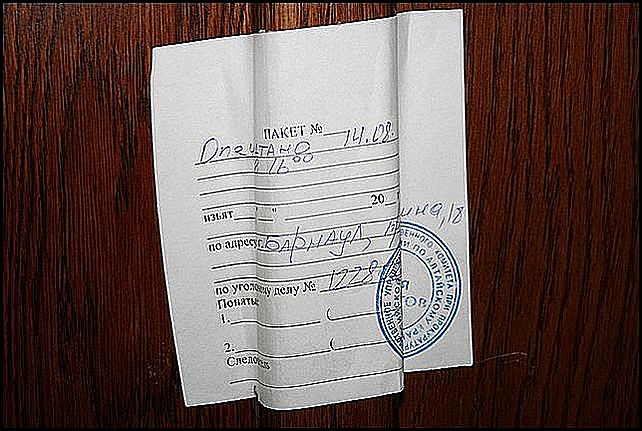 ПАКЕТ № 14.08.
Опечтано
16 00
изъят " " 20
по адресу: Барнаул,
по уголовному делу № 1228
Понятые
1. (
2. (
Следователь
ПО АЛТАЙСКОМУ КРАЮ